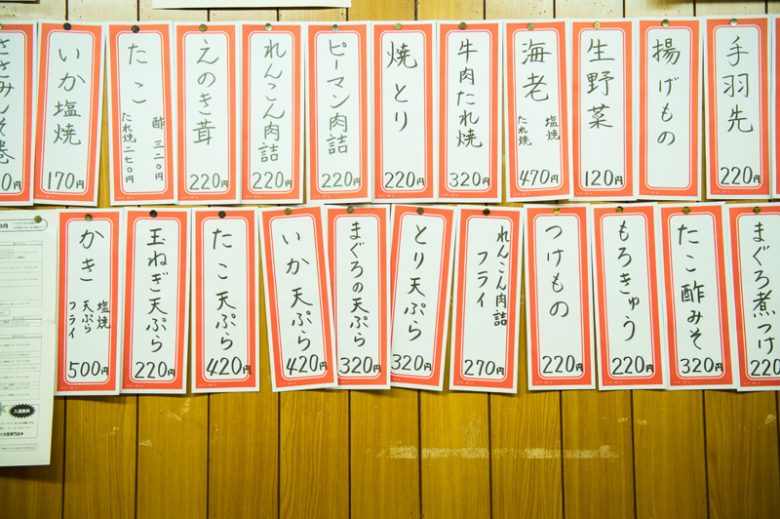 手羽先
220円
揚げもの
生野菜
120円
海老
塩焼
たれ焼
470円
牛肉たれ焼
320円
焼とり
220円
ピーマン肉詰
220円
れんこん肉詰
220円
えのき茸
220円
たこ
酢 三二〇円
たれ焼 二七〇円
いか塩焼
170円
まぐろ煮つけ
220
たこ酢みそ
320円
もろきゅう
220円
つけもの
220円
れんこん肉詰
フライ
270円
とり天ぷら
320円
まぐろの天ぷら
320円
いか天ぷら
420円
たこ天ぷら
420円
玉ねぎ天ぷら
220円
かき
塩焼
天ぷら
フライ
500円